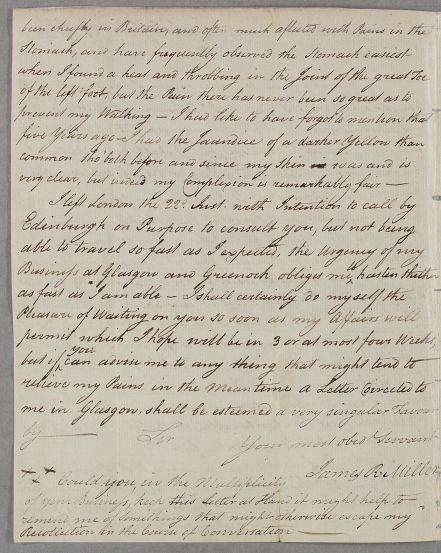 been chiefly in Britain, and often much afflicted with Pains in the
Stomach, and have frequently observed the Stomach easiest
when I found a heat and throbbing in the Joint of the great Toe
of the left foot, but the Pain there has never been so great as to
prevent my Walking – I had like to have forgot to mention that
five Years ago – I had the Jaundice of a darker Yellow than
common tho' both before and since my Skin was and is
very clear, but indeed my Complexion is remarkably fair –
I left London the 22d. Inst. with Intention to call by
Edinburgh on Purpose to consult you, but not being
able to travel so fast as I expected, the Urgency of my
Business at Glasgow and Greenock obliges me hasten thither
as fast as I am able – I shall certainly do myself the
Pleasure of Waiting on you so soon as my Affairs will
permit which I hope will be in 3 or at most four Weeks,
but if you can advise me to any thing that might tend to
relieve my Pains in the Mean time a Letter directed to
me in Glasgow, shall be esteemed a very singular Favour
by — Sir
Your most obedt. Servant
James R. Miller
Could you, in the Multiplicity
of your Business, keep this Letter at Hand it might help to
remind me of somethings that might otherwise escape my
Recollection in the Course of Conversation —